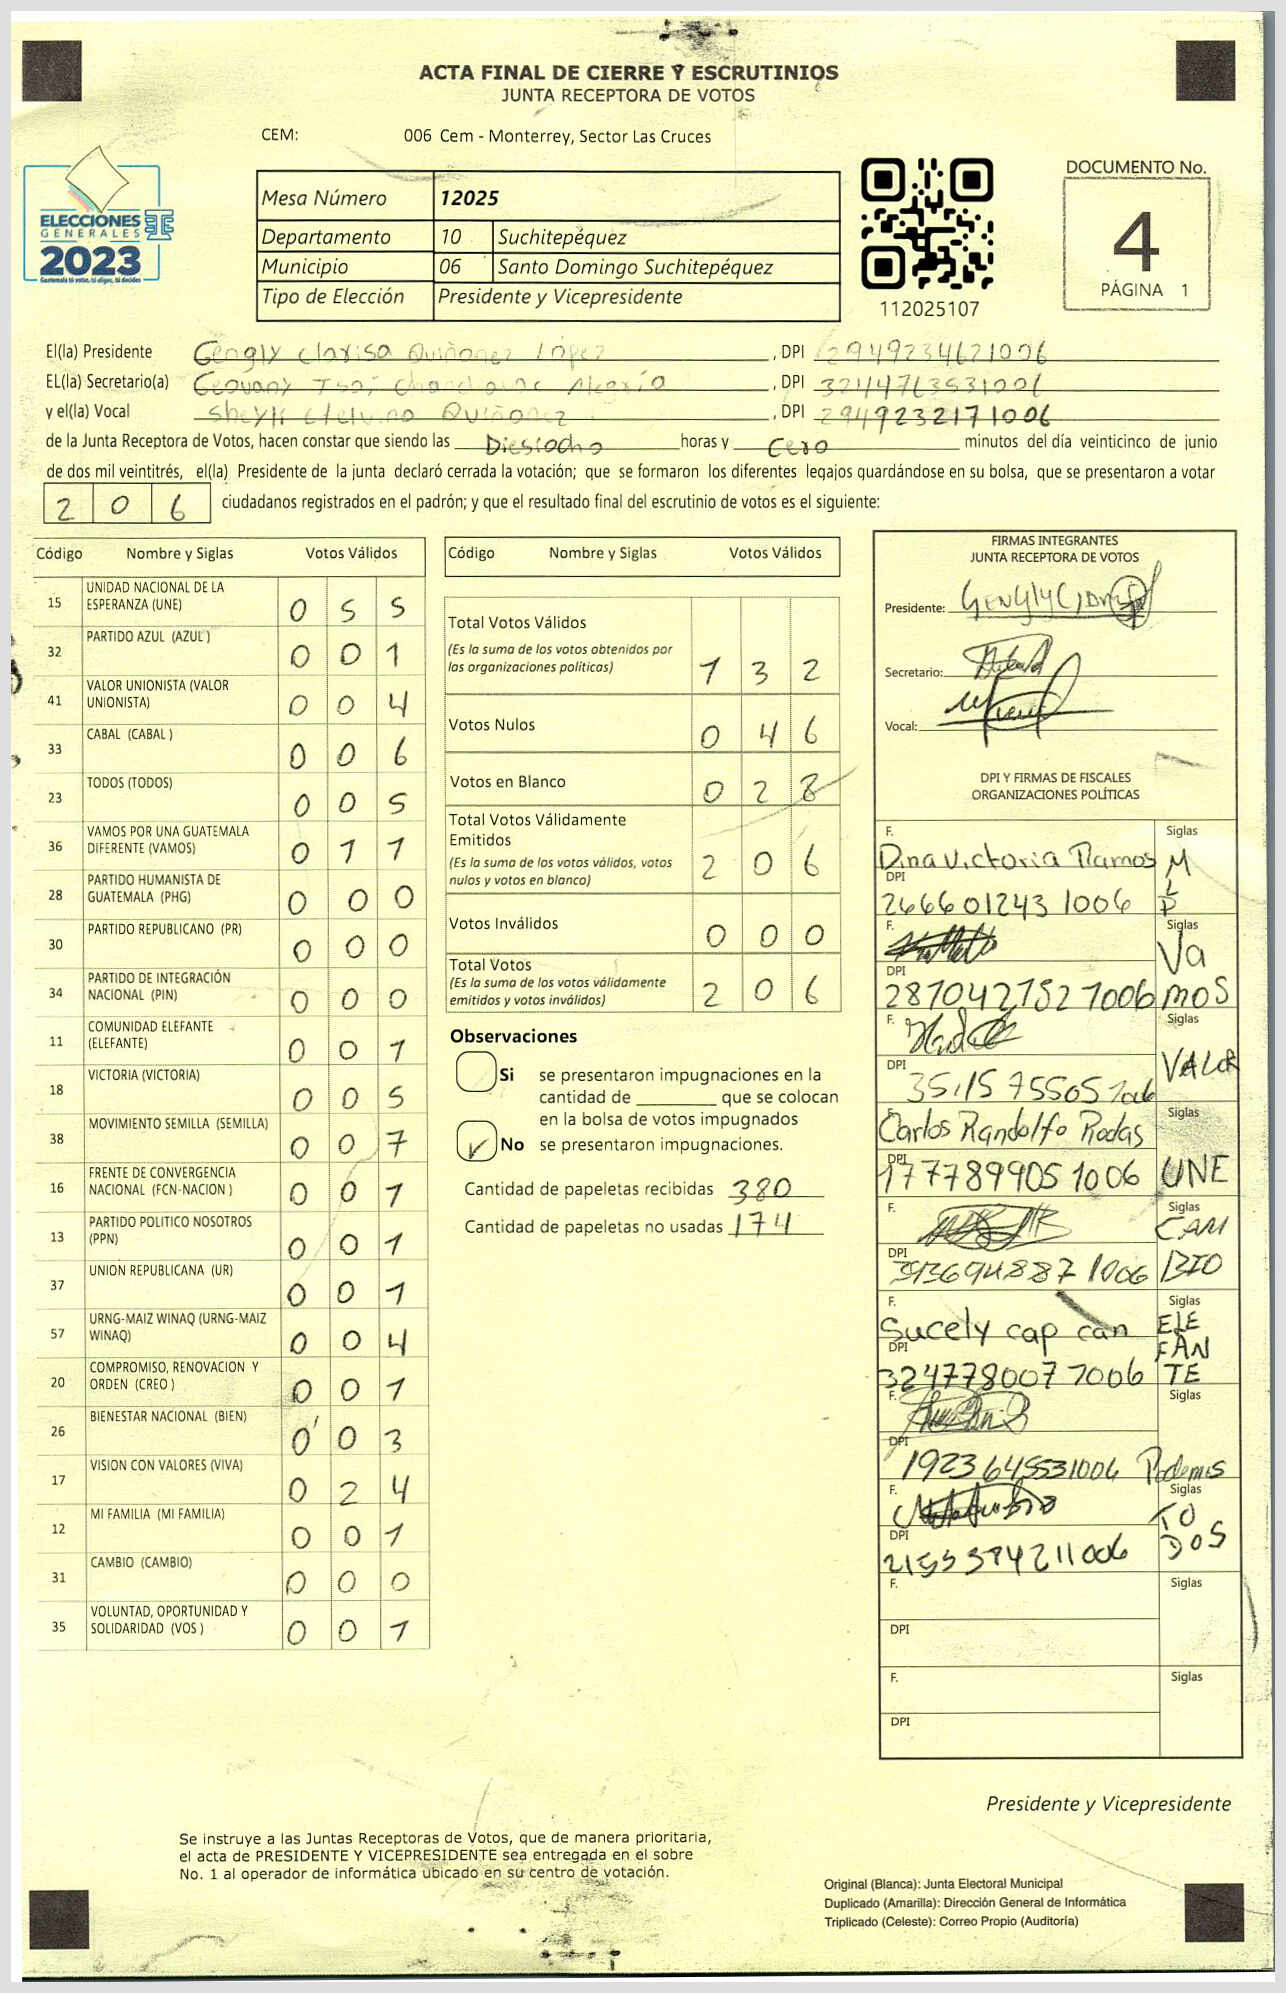 ACTA FINAL DE CIERRE Y ESCRUTINIOS
JUNTA RECEPTORA DE VOTOS
CEM: 006 Cem - Monterrey, Sector Las Cruces
ELECCIONES
GENERALES
2023
Guatemala tú votas, tú eliges, tú decides
Mesa Número 12025
Departamento 10 Suchitepéquez
Municipio 06 Santo Domingo Suchitepéquez
Tipo de Elección Presidente y Vicepresidente
112025107
DOCUMENTO No.
4
PÁGINA 1
El(la) Presidente Gengly Clarisa Quiñonez López, DPI 2949234621006
EL(la) Secretario(a) Geovany Alegría, DPI 3244763531006
y el(la) Vocal Quiñonez, DPI 2949232171006
de la Junta Receptora de Votos, hacen constar que siendo las Diesiocho horas y Cero minutos del día veinticinco de junio
de dos mil veintitrés, el(la) Presidente de la junta declaró cerrada la votación; que se formaron los diferentes legajos guardándose en su bolsa, que se presentaron a votar
2 0 6 ciudadanos registrados en el padrón; y que el resultado final del escrutinio de votos es el siguiente:
Código Nombre y Siglas Votos Válidos
15 UNIDAD NACIONAL DE LA
ESPERANZA (UNE) 0 5 5
32 PARTIDO AZUL (AZUL ) 0 0 1
41 VALOR UNIONISTA (VALOR
UNIONISTA) 0 0 4
33 CABAL (CABAL ) 0 0 6
23 TODOS (TODOS) 0 0 5
36 VAMOS POR UNA GUATEMALA
DIFERENTE (VAMOS) 0 1 1
28 PARTIDO HUMANISTA DE
GUATEMALA (PHG) 0 0 0
30 PARTIDO REPUBLICANO (PR) 0 0 0
34 PARTIDO DE INTEGRACIÓN
NACIONAL (PIN) 0 0 0
11 COMUNIDAD ELEFANTE
(ELEFANTE) 0 0 1
18 VICTORIA (VICTORIA) 0 0 5
38 MOVIMIENTO SEMILLA (SEMILLA) 0 0 7
16 FRENTE DE CONVERGENCIA
NACIONAL (FCN-NACION ) 0 0 1
13 PARTIDO POLITICO NOSOTROS
(PPN) 0 0 1
37 UNION REPUBLICANA (UR) 0 0 1
57 URNG-MAIZ WINAQ (URNG-MAIZ
WINAQ) 0 0 4
20 COMPROMISO, RENOVACION Y
ORDEN (CREO ) 0 0 1
26 BIENESTAR NACIONAL (BIEN) 0 0 3
17 VISION CON VALORES (VIVA) 0 2 4
12 MI FAMILIA (MI FAMILIA) 0 0 1
31 CAMBIO (CAMBIO) 0 0 0
35 VOLUNTAD, OPORTUNIDAD Y
SOLIDARIDAD (VOS ) 0 0 1
Código Nombre y Siglas Votos Válidos
Total Votos Válidos
(Es la suma de los votos obtenidos por
las organizaciones políticas) 1 3 2
Votos Nulos 0 4 6
Votos en Blanco 0 2 8
Total Votos Válidamente
Emitidos
(Es la suma de los votos válidos, votos
nulos y votos en blanco) 2 0 6
Votos Inválidos 0 0 0
Total Votos
(Es la suma de los votos válidamente
emitidos y votos inválidos) 2 0 6
Observaciones
Si se presentaron impugnaciones en la
cantidad de ________ que se colocan
en la bolsa de votos impugnados
No se presentaron impugnaciones.
Cantidad de papeletas recibidas 380
Cantidad de papeletas no usadas 174
FIRMAS INTEGRANTES
JUNTA RECEPTORA DE VOTOS
Presidente:
Secretario:
Vocal:
DPI Y FIRMAS DE FISCALES
ORGANIZACIONES POLÍTICAS
F. Siglas
Dina Victoria Ramos MLP
DPI
2666012431006
F. Siglas
Vamos
DPI
2870427527006
F. Siglas
VALOR
DPI
3515755051006
Siglas
Carlos Randolfo Rodas
DPI
1777899051006 UNE
F. Siglas
CAMBIO
DPI
F. Siglas
Sucely cap can ELEFANTE
DPI
3247780077006
F. Siglas
DPI
1923645531006 Podemos
F. Siglas
TODOS
DPI
F. Siglas
DPI
F. Siglas
DPI
Presidente y Vicepresidente
Se instruye a las Juntas Receptoras de Votos, que de manera prioritaria,
el acta de PRESIDENTE Y VICEPRESIDENTE sea entregada en el sobre
No. 1 al operador de informática ubicado en su centro de votación.
Original (Blanca): Junta Electoral Municipal
Duplicado (Amarilla): Dirección General de Informática
Triplicado (Celeste): Correo Propio (Auditoría)